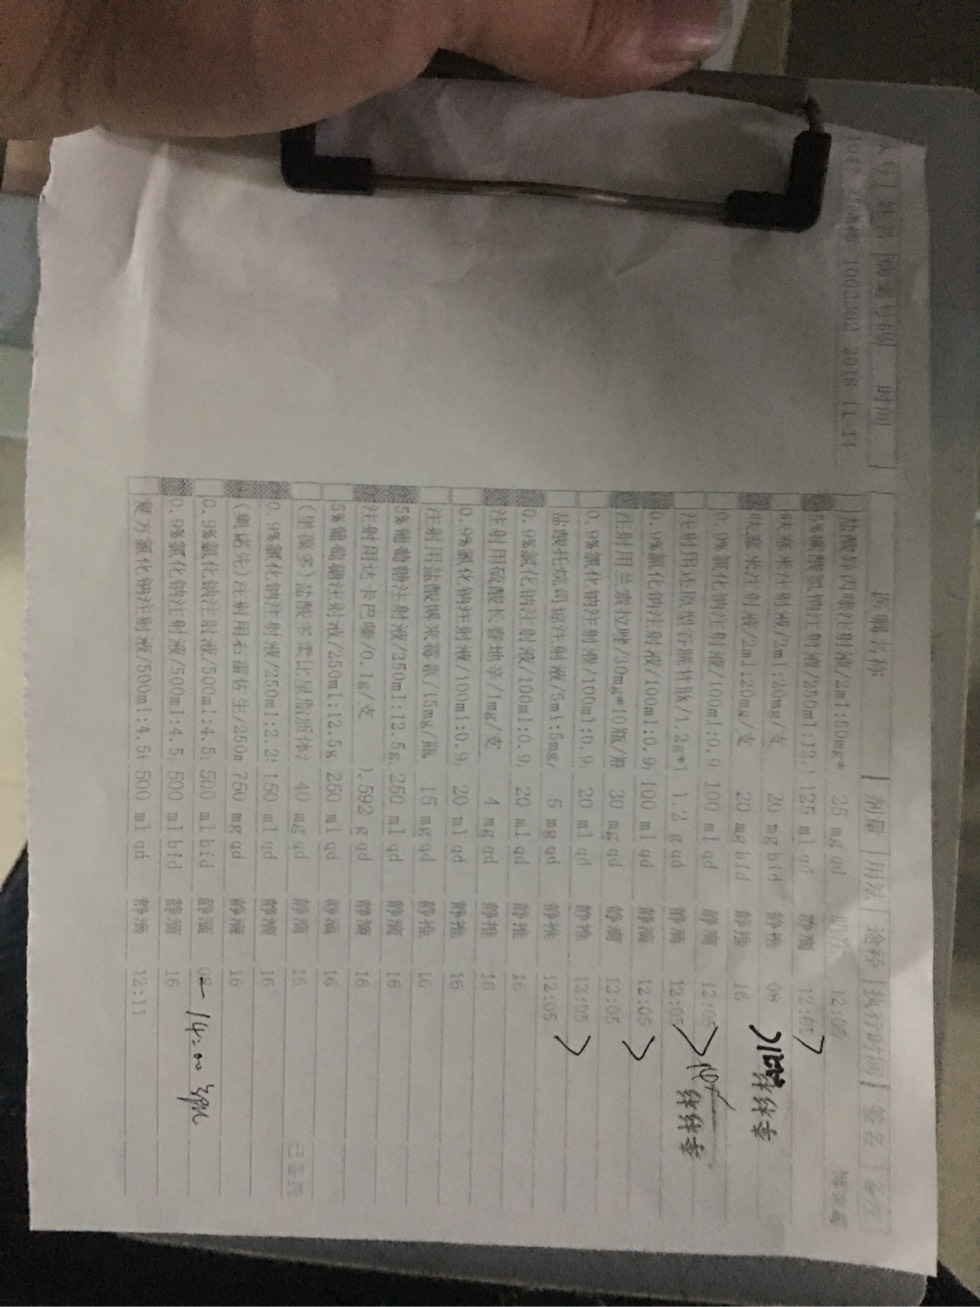 时间 医嘱名称 剂量 用法 途径 执行时间 签名 备注
1002302 2018 11 11
盐酸异丙嗪注射液/2ml:50mg* 25 mg qd 12:05
碳酸氢钠注射液/250ml:12. 125 ml qd 静滴 12:05
呋塞米注射液/2ml:20mg/支 20 mg bid 静推 08
呋塞米注射液/2ml:20mg/支 20 mg bid 静推 16
0.9%氯化钠注射液/100ml:0.9 100 ml qd 静滴 12:05
注射用还原型谷胱甘肽/1.2g* 1.2 g qd 静滴 12:05
0.9%氯化钠注射液/100ml:0.9 100 ml qd 静滴 12:05
注射用兰索拉唑/30mg*10瓶/ 30 mg qd 静滴 12:05
0.9%氯化钠注射液/100ml:0.9 20 ml qd 静推 12:05
盐酸托烷司琼注射液/5ml:5mg/ 5 mg qd 静推 12:05
0.9%氯化钠注射液/100ml:0.9 20 ml qd 静推 16
注射用硫酸长春地辛/1mg/支 4 mg qd 静推 16
0.9%氯化钠注射液/100ml:0.9 20 ml qd 静推 16
注射用盐酸博来霉素/15mg/瓶 15 mg qd 静推 16
5%葡萄糖注射液/250ml:12.5g 250 ml qd 静滴 16
注射用达卡巴嗪/0.1g/支 .592 g qd 静滴 16
5%葡萄糖注射液/250ml:12.5g 250 ml qd 静滴 16
(里葆多)盐酸多柔比星脂质体 40 mg qd 静滴 16
0.9%氯化钠注射液/250ml:2.2 150 ml qd 静滴 16
(奥诺先)注射用右雷佐生/250m 750 mg qd 静滴 16
0.9%氯化钠注射液/500ml:4.5 500 ml bid 静滴 08 14:00
0.9%氯化钠注射液/500ml:4.5 500 ml bid 静滴 16
复方氯化钠注射液/500ml:4.5 500 ml qd 静滴 12:11